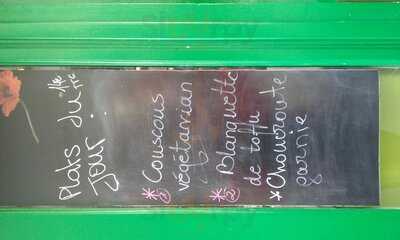 Plats du
Jour :
* Couscous
② végétarrian
* Blanquette
② de toffu
* Choucroute
garnie